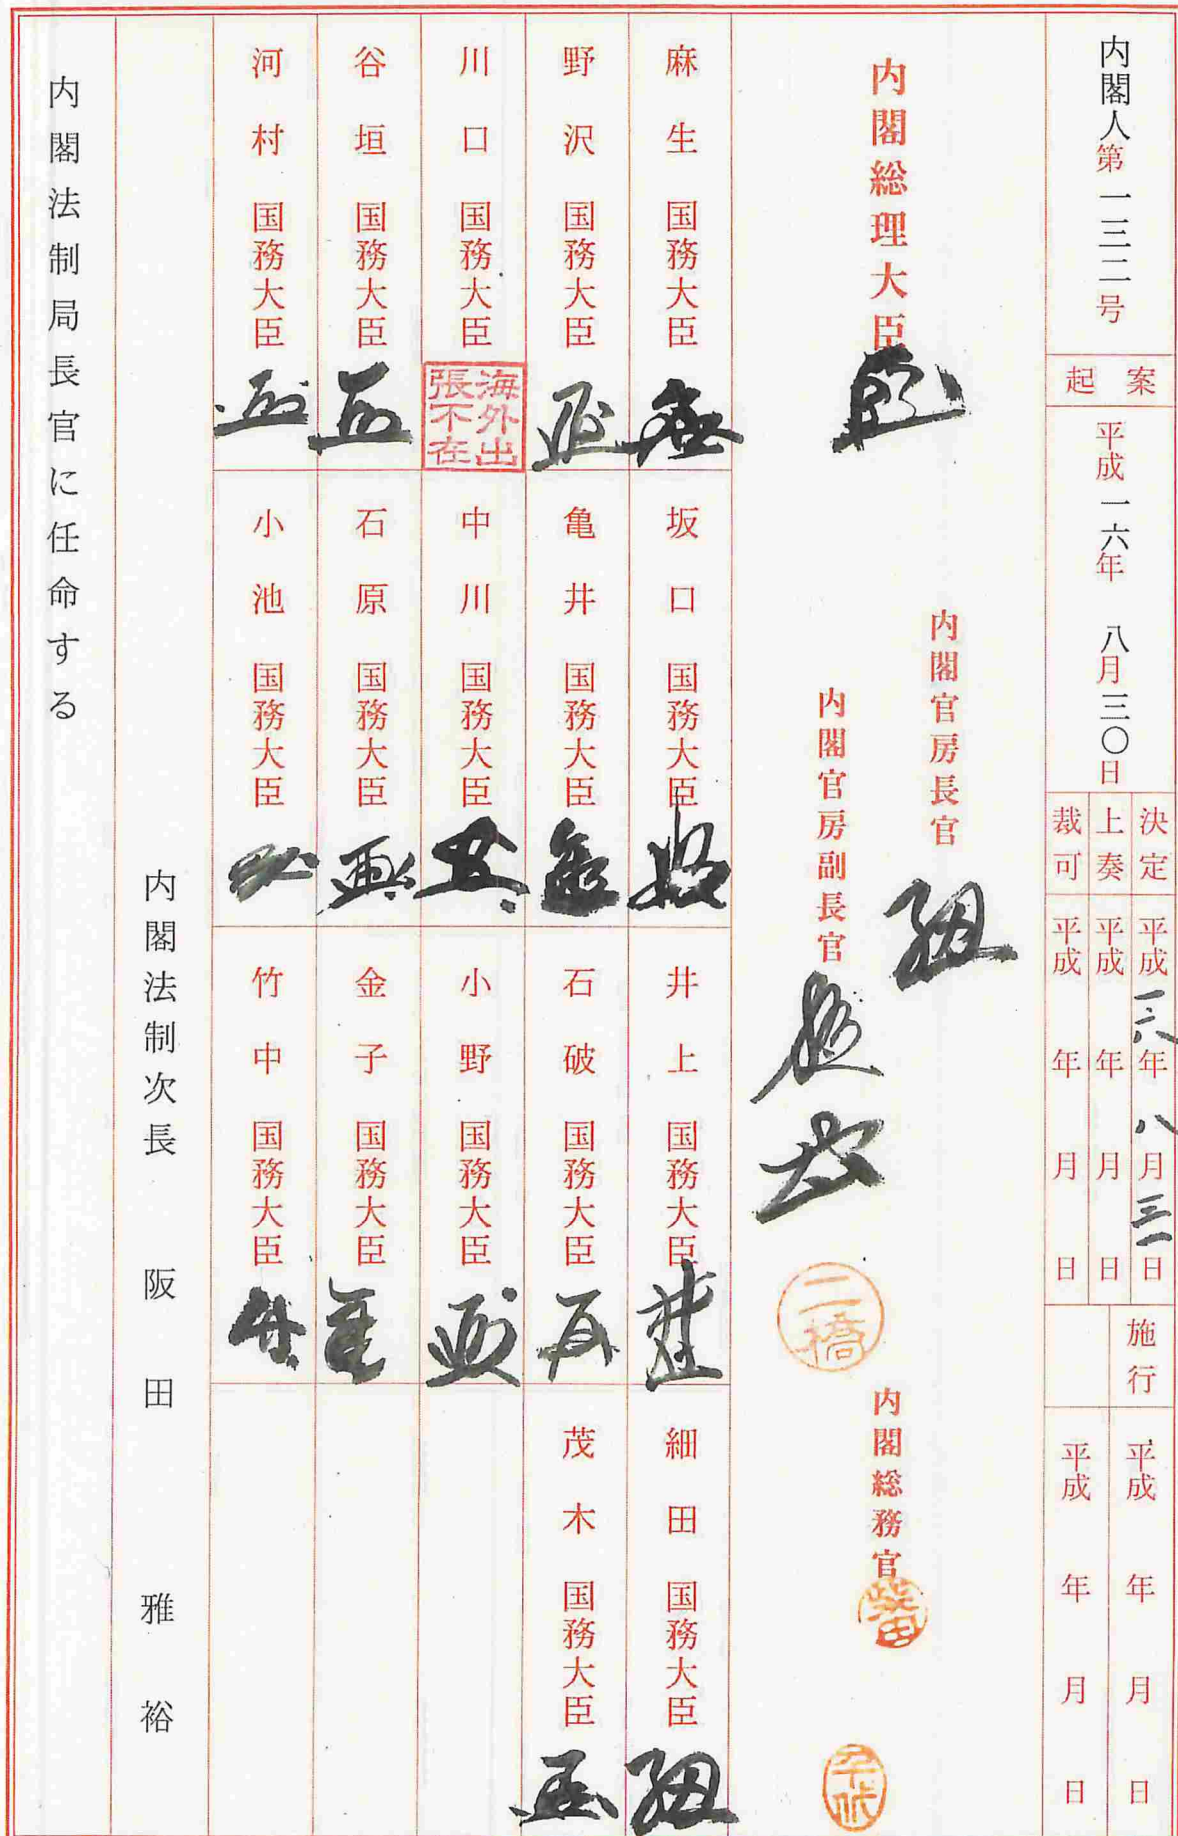 内閣人第一三二号
起案
平成一六年 八月三〇日
決定 平成一六年八月三一日
上奏 平成 年 月 日
裁可 平成 年 月 日
施行 平成 年 月 日
平成 年 月 日
内閣総理大臣
内閣官房長官
内閣官房副長官
二橋
内閣総務官
柴田
麻生 国務大臣
坂口 国務大臣
井上 国務大臣
細田 国務大臣
野沢 国務大臣
亀井 国務大臣
石破 国務大臣
茂木 国務大臣
川口 国務大臣
海外出張不在
中川 国務大臣
小野 国務大臣
谷垣 国務大臣
石原 国務大臣
金子 国務大臣
河村 国務大臣
小池 国務大臣
竹中 国務大臣
内閣法制次長 阪田雅裕
内閣法制局長官に任命する